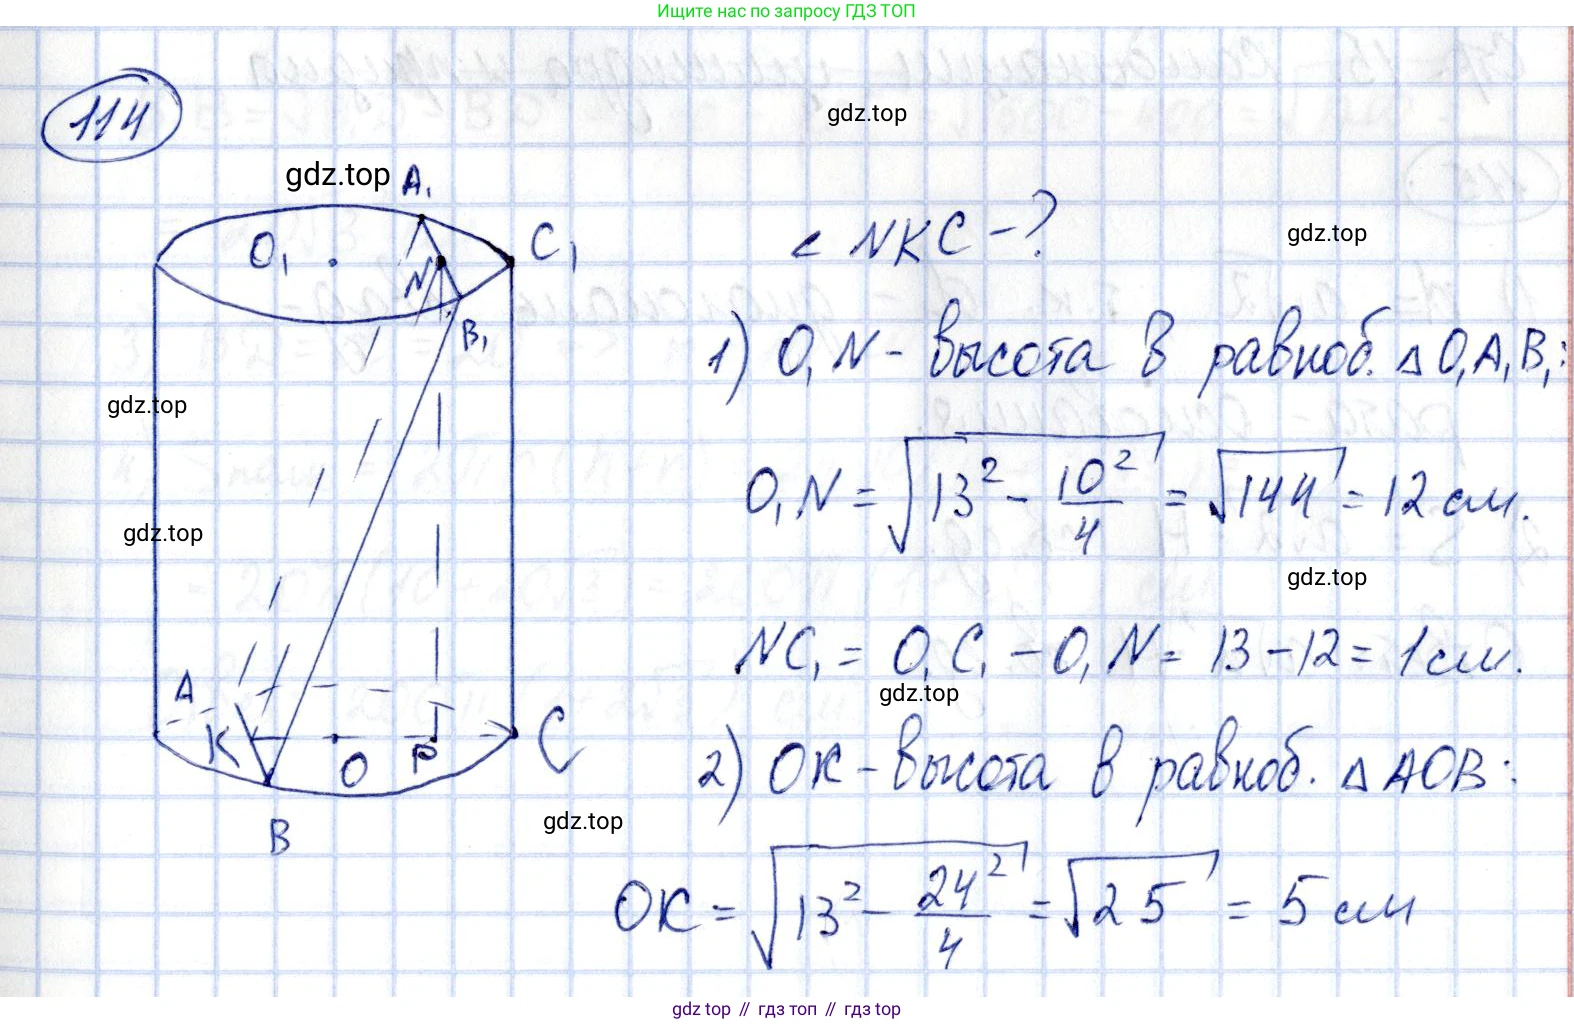 Ищите нас по запросу ГДЗ ТОП
114
gdz.top
gdz.top
A₁
O₁
C₁
N
B₁
gdz.top
gdz.top
A
K
O
P
C
B
∠ NKC - ?
gdz.top
1) O₁N - высота в равноб. △ O₁A₁B₁:
O₁N = √(13² - 10²/4) = √144 = 12 см.
gdz.top
NC₁ = O₁C₁ - O₁N = 13 - 12 = 1 см.
gdz.top
2) OK - высота в равноб. △ AOB:
gdz.top
OK = √(13² - 24²/4) = √25 = 5 см
gdz top // гдз топ // гdz top